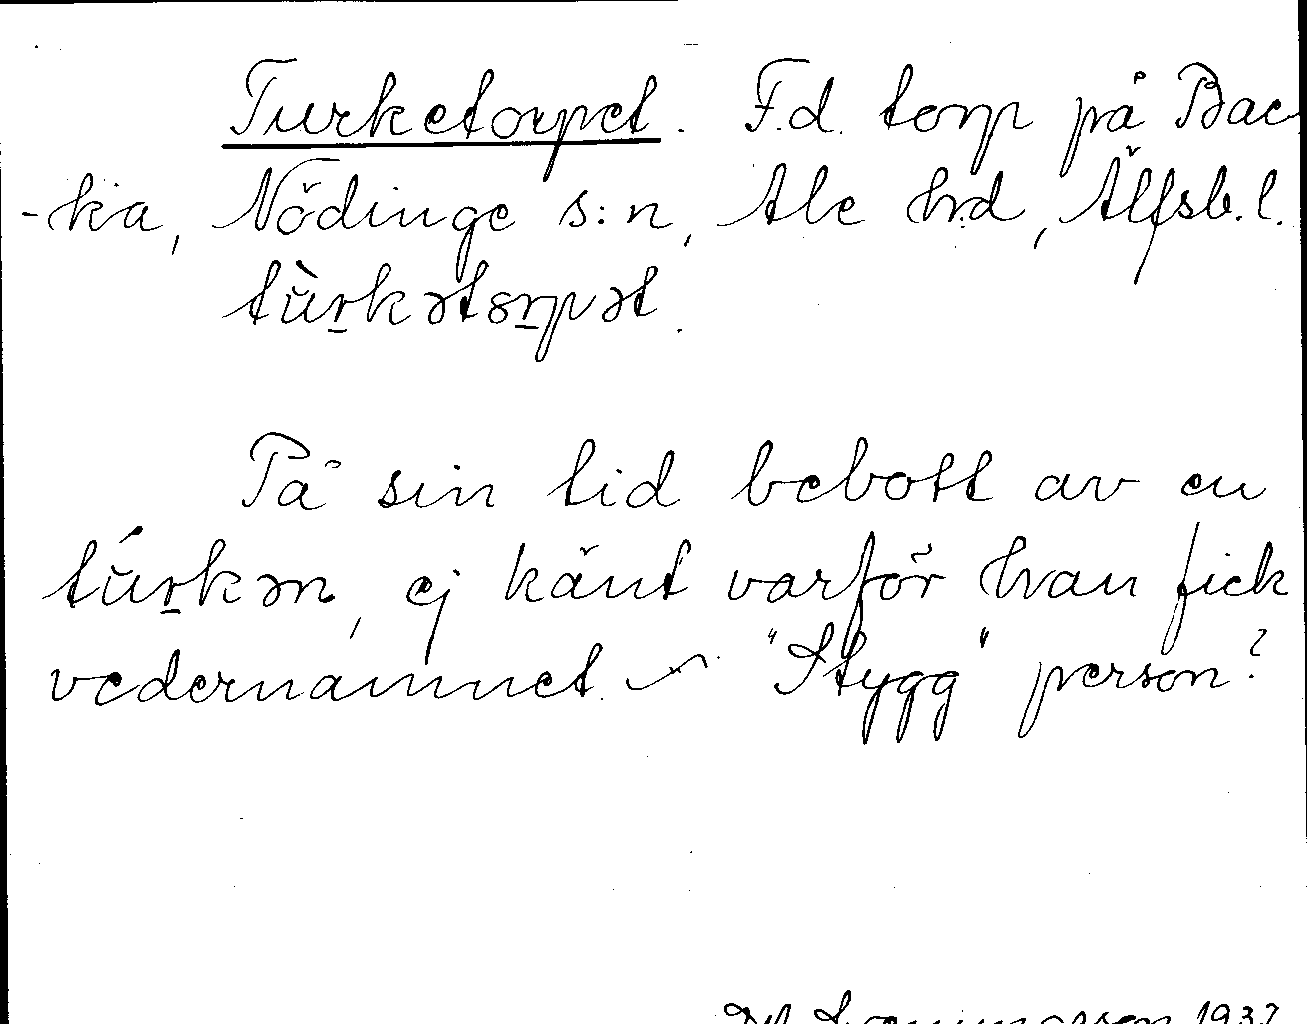 Turketorpet. F.d. torp på Bac
-ka, Nödinge s:n, Ale h:d, Älfsb. l.
tùrkətorpət.
På sin tid bebott av en
túrkən, ej känt varför han fick
vedernamnet. "Stygg" person?